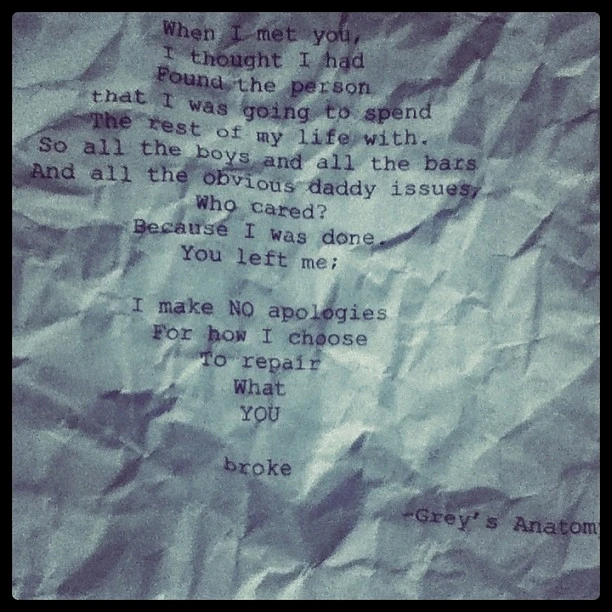 When I met you,
I thought I had
Found the person
that I was going to spend
The rest of my life with.
So all the boys and all the bars
And all the obvious daddy issues,
Who cared?
Because I was done.
You left me;
I make NO apologies
For how I choose
To repair
What
YOU
broke
-Grey's Anatom